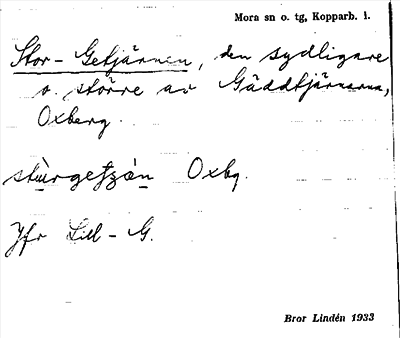 Mora sn o. tg, Kopparb. l.
Stor-Getjärnen, den sydligare
o. större av Gäddtjärnarna,
Oxberg.
Oxbg.
Jfr Lill-G.
Bror Lindén 1933